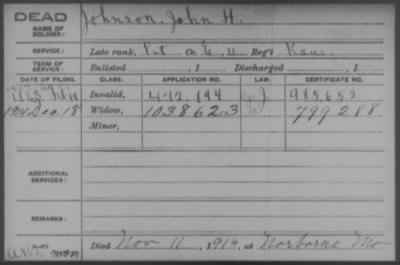 DEAD
NAME OF SOLDIER: Johnson, John H.
SERVICE: Late rank, Pvt Co E, 11 Reg't Kans.
TERM OF SERVICE: Enlisted , 1 Discharged , 1
DATE OF FILING. CLASS. APPLICATION NO. LAW. CERTIFICATE NO.
Invalid, 472.894 985.652
1914 Dec. 18 Widow, 1038623 799288
Minor,
ADDITIONAL SERVICES:
REMARKS:
Died Nov 11, 1914, at Norborne Mo